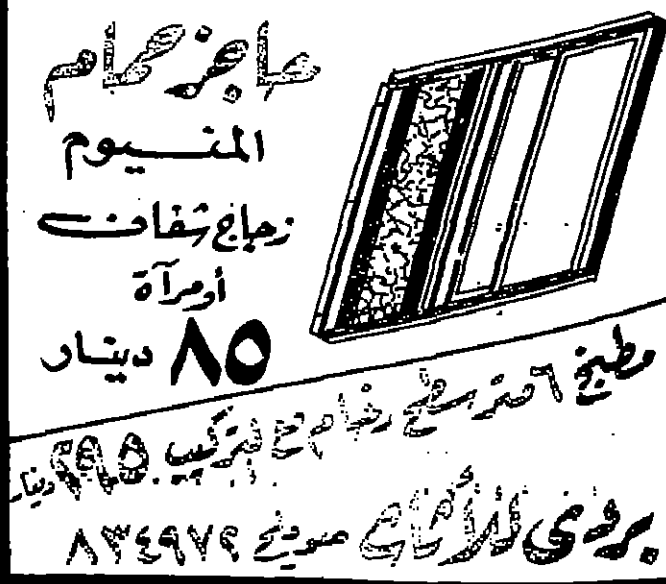 حاجز حمام
المنيوم
زجاج شفاف
أو مرآة
٨٥ دينار
مطبخ ٦ متر سطح رخام مع التركيب ٢٩٥ دينار
للأثاث صويلح ٨٣٤٩٧٢